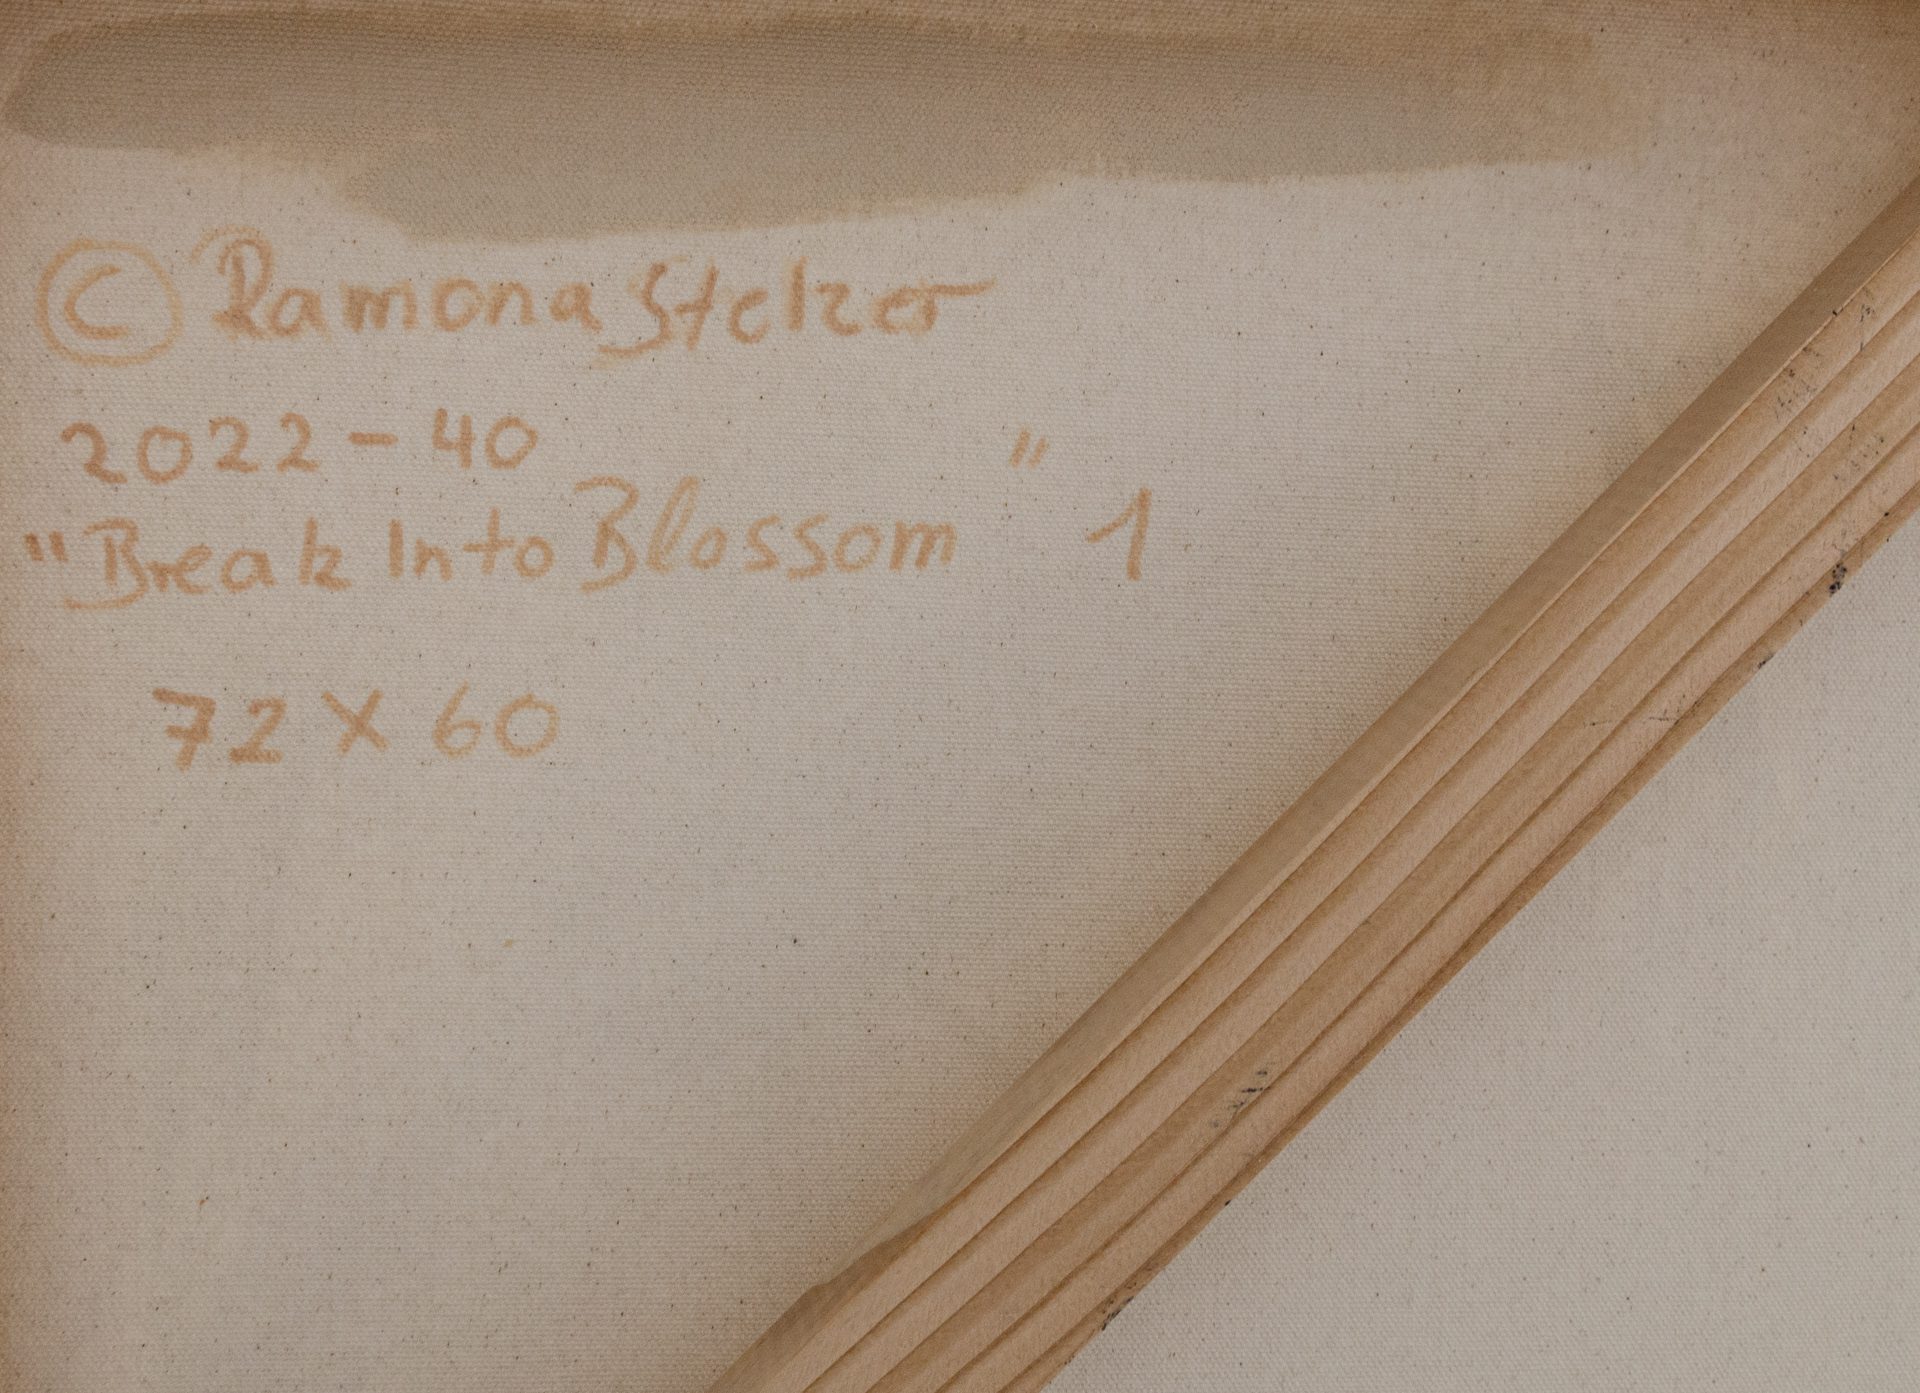 © Ramona Stelzer
2022 - 40
"Break Into Blossom" 1
72 x 60